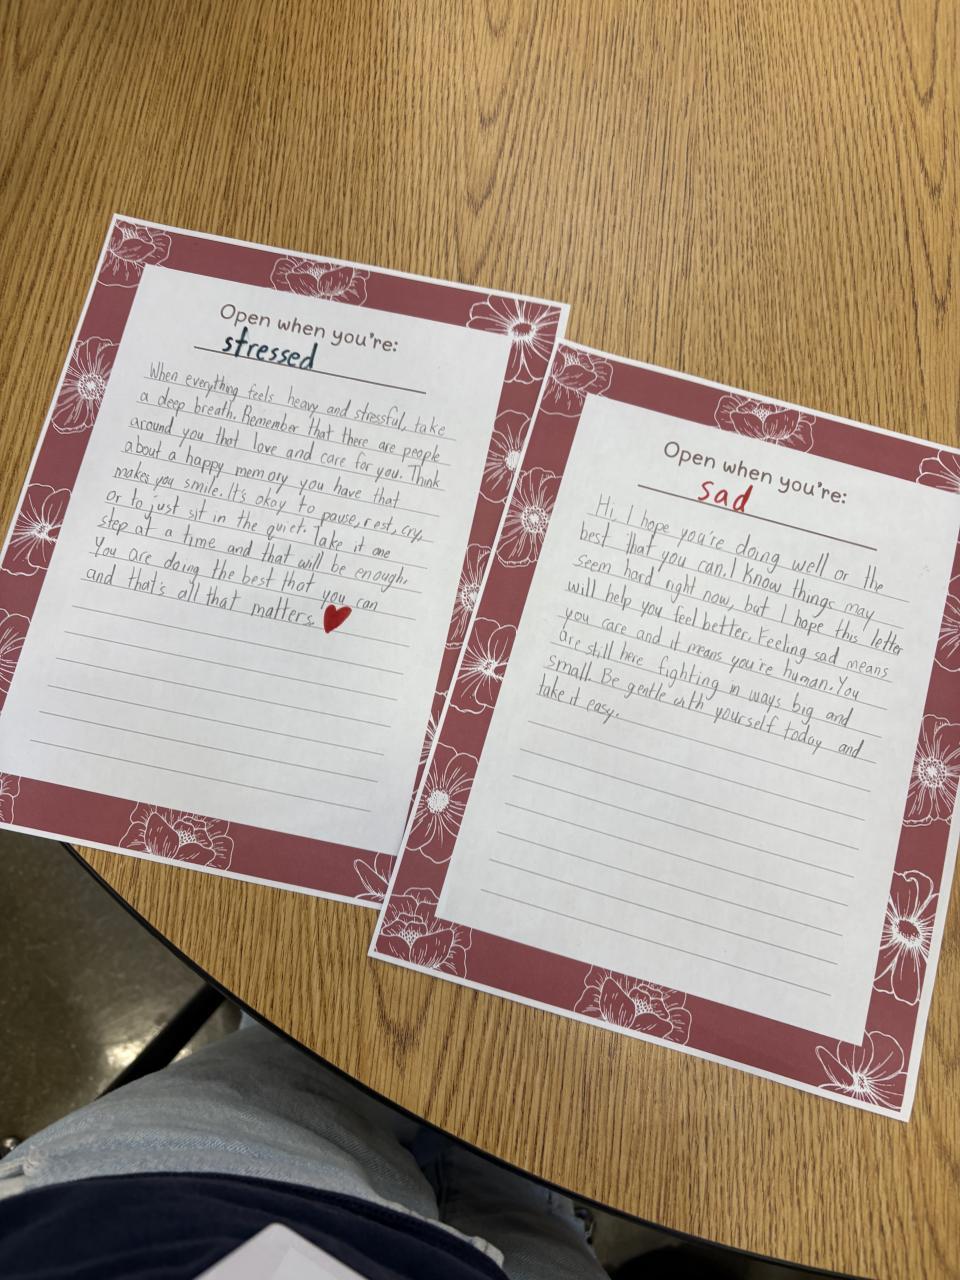 Open when you're:
stressed
When everything feels heavy and stressful, take
a deep breath. Remember that there are people
around you that love and care for you. Think
about a happy memory you have that
makes you smile. It's okay to pause, rest, cry,
or to just sit in the quiet. Take it one
step at a time and that will be enough.
You are doing the best that you can
and that's all that matters.
Open when you're:
sad
Hi, I hope you're doing well or the
best that you can. I know things may
seem hard right now, but I hope this letter
will help you feel better. Feeling sad means
you care and it means you're human. You
are still here fighting in ways big and
small. Be gentle with yourself today and
take it easy.